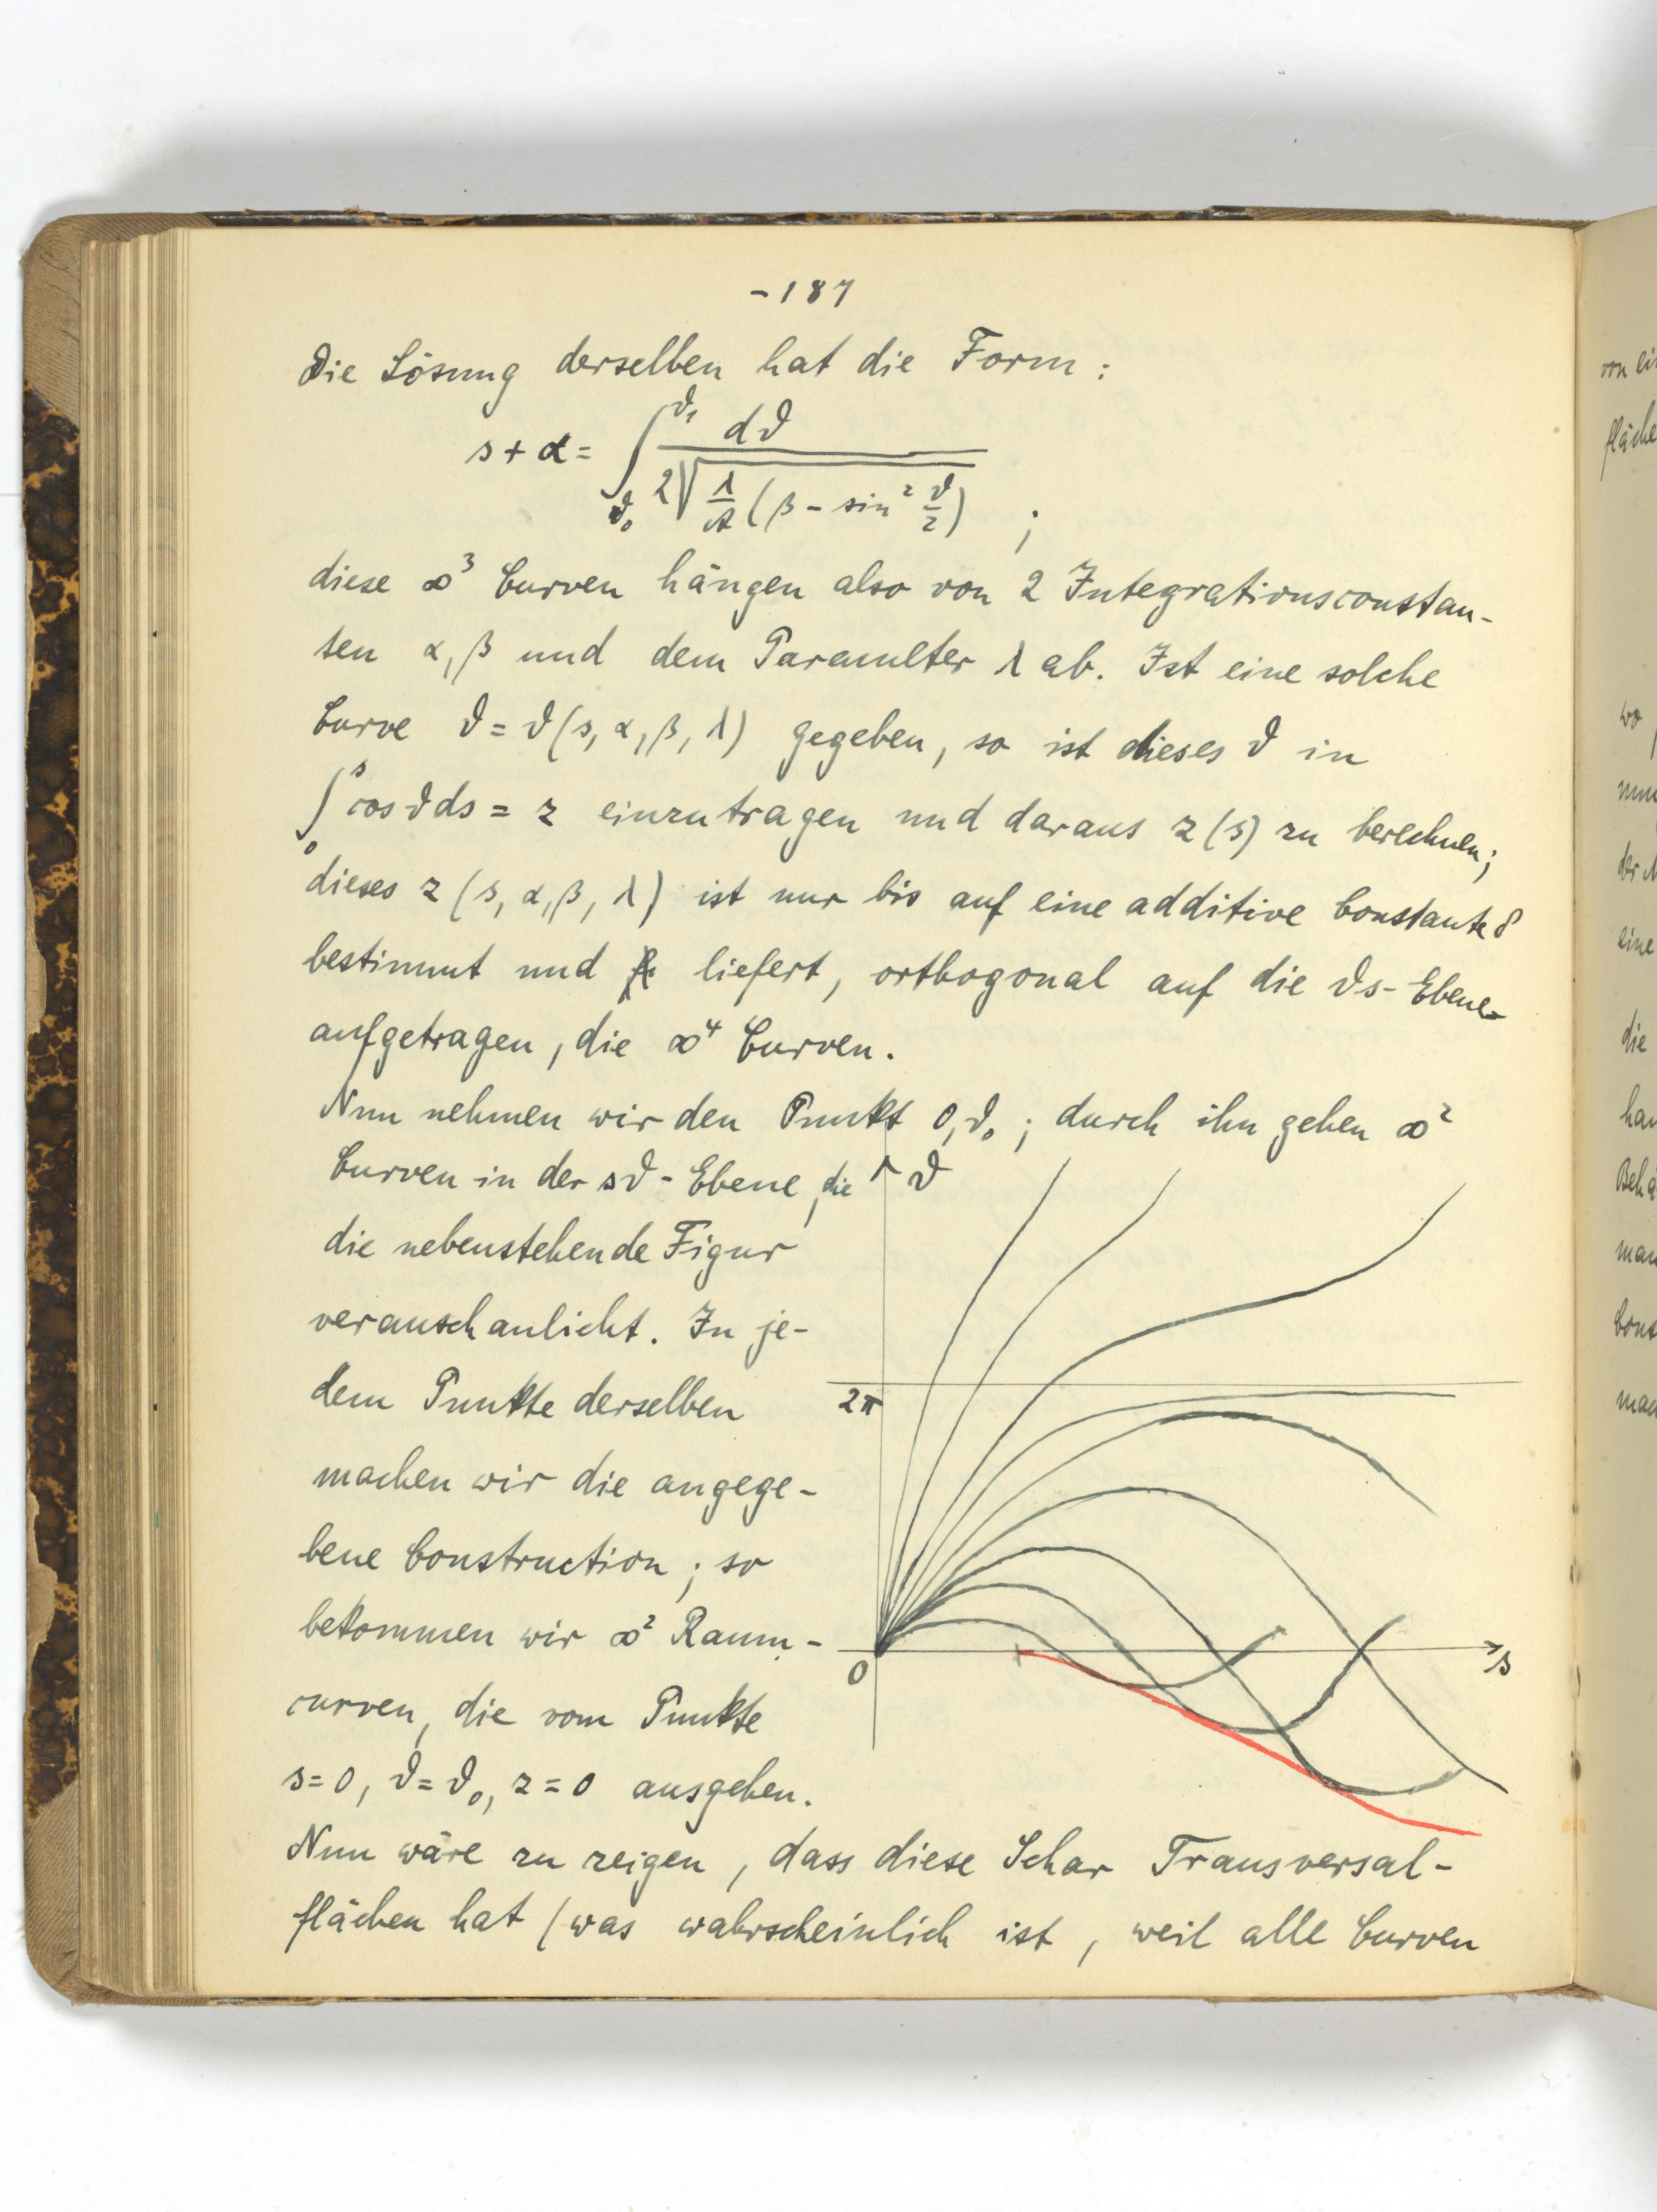 - 187
Die Lösung derselben hat die Form:
s + α = ∫_{ϑ₀}^{ϑ₁} dϑ / 2√(λ/A (β - sin² ϑ/2)) ;
diese ∞³ Curven hängen also von 2 Integrationsconstan-
ten α, β und dem Parameter λ ab. Ist eine solche
Curve ϑ = ϑ(s, α, β, λ) gegeben, so ist dieses ϑ in
∫₀ˢ cos ϑ ds = z einzutragen und daraus z(s) zu berechnen;
dieses z(s, α, β, λ) ist nur bis auf eine additive Constante δ
bestimmt und liefert, orthogonal auf die ϑs-Ebene
aufgetragen, die ∞⁴ Curven.
Nun nehmen wir den Punkt 0, ϑ₀ ; durch ihn gehen ∞²
Curven in der sϑ-Ebene, die
die nebenstehende Figur
veranschaulicht. In je-
dem Punkte derselben
machen wir die angege-
bene Construction ; so
bekommen wir ∞² Raum-
curven, die vom Punkte
s = 0, ϑ = ϑ₀, z = 0 ausgehen.
Nun wäre zu zeigen, dass diese Schar Transversal-
flächen hat (was wahrscheinlich ist, weil alle Curven
ϑ
2π
0
s
von ei
fläche
wo
nun
der
eine
die
han
Beh
man
Cons
mac